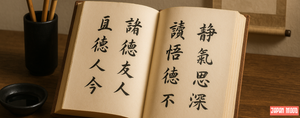 静氣思深
讀悟德不
諸德友人
德人今
JAPAN MOOD